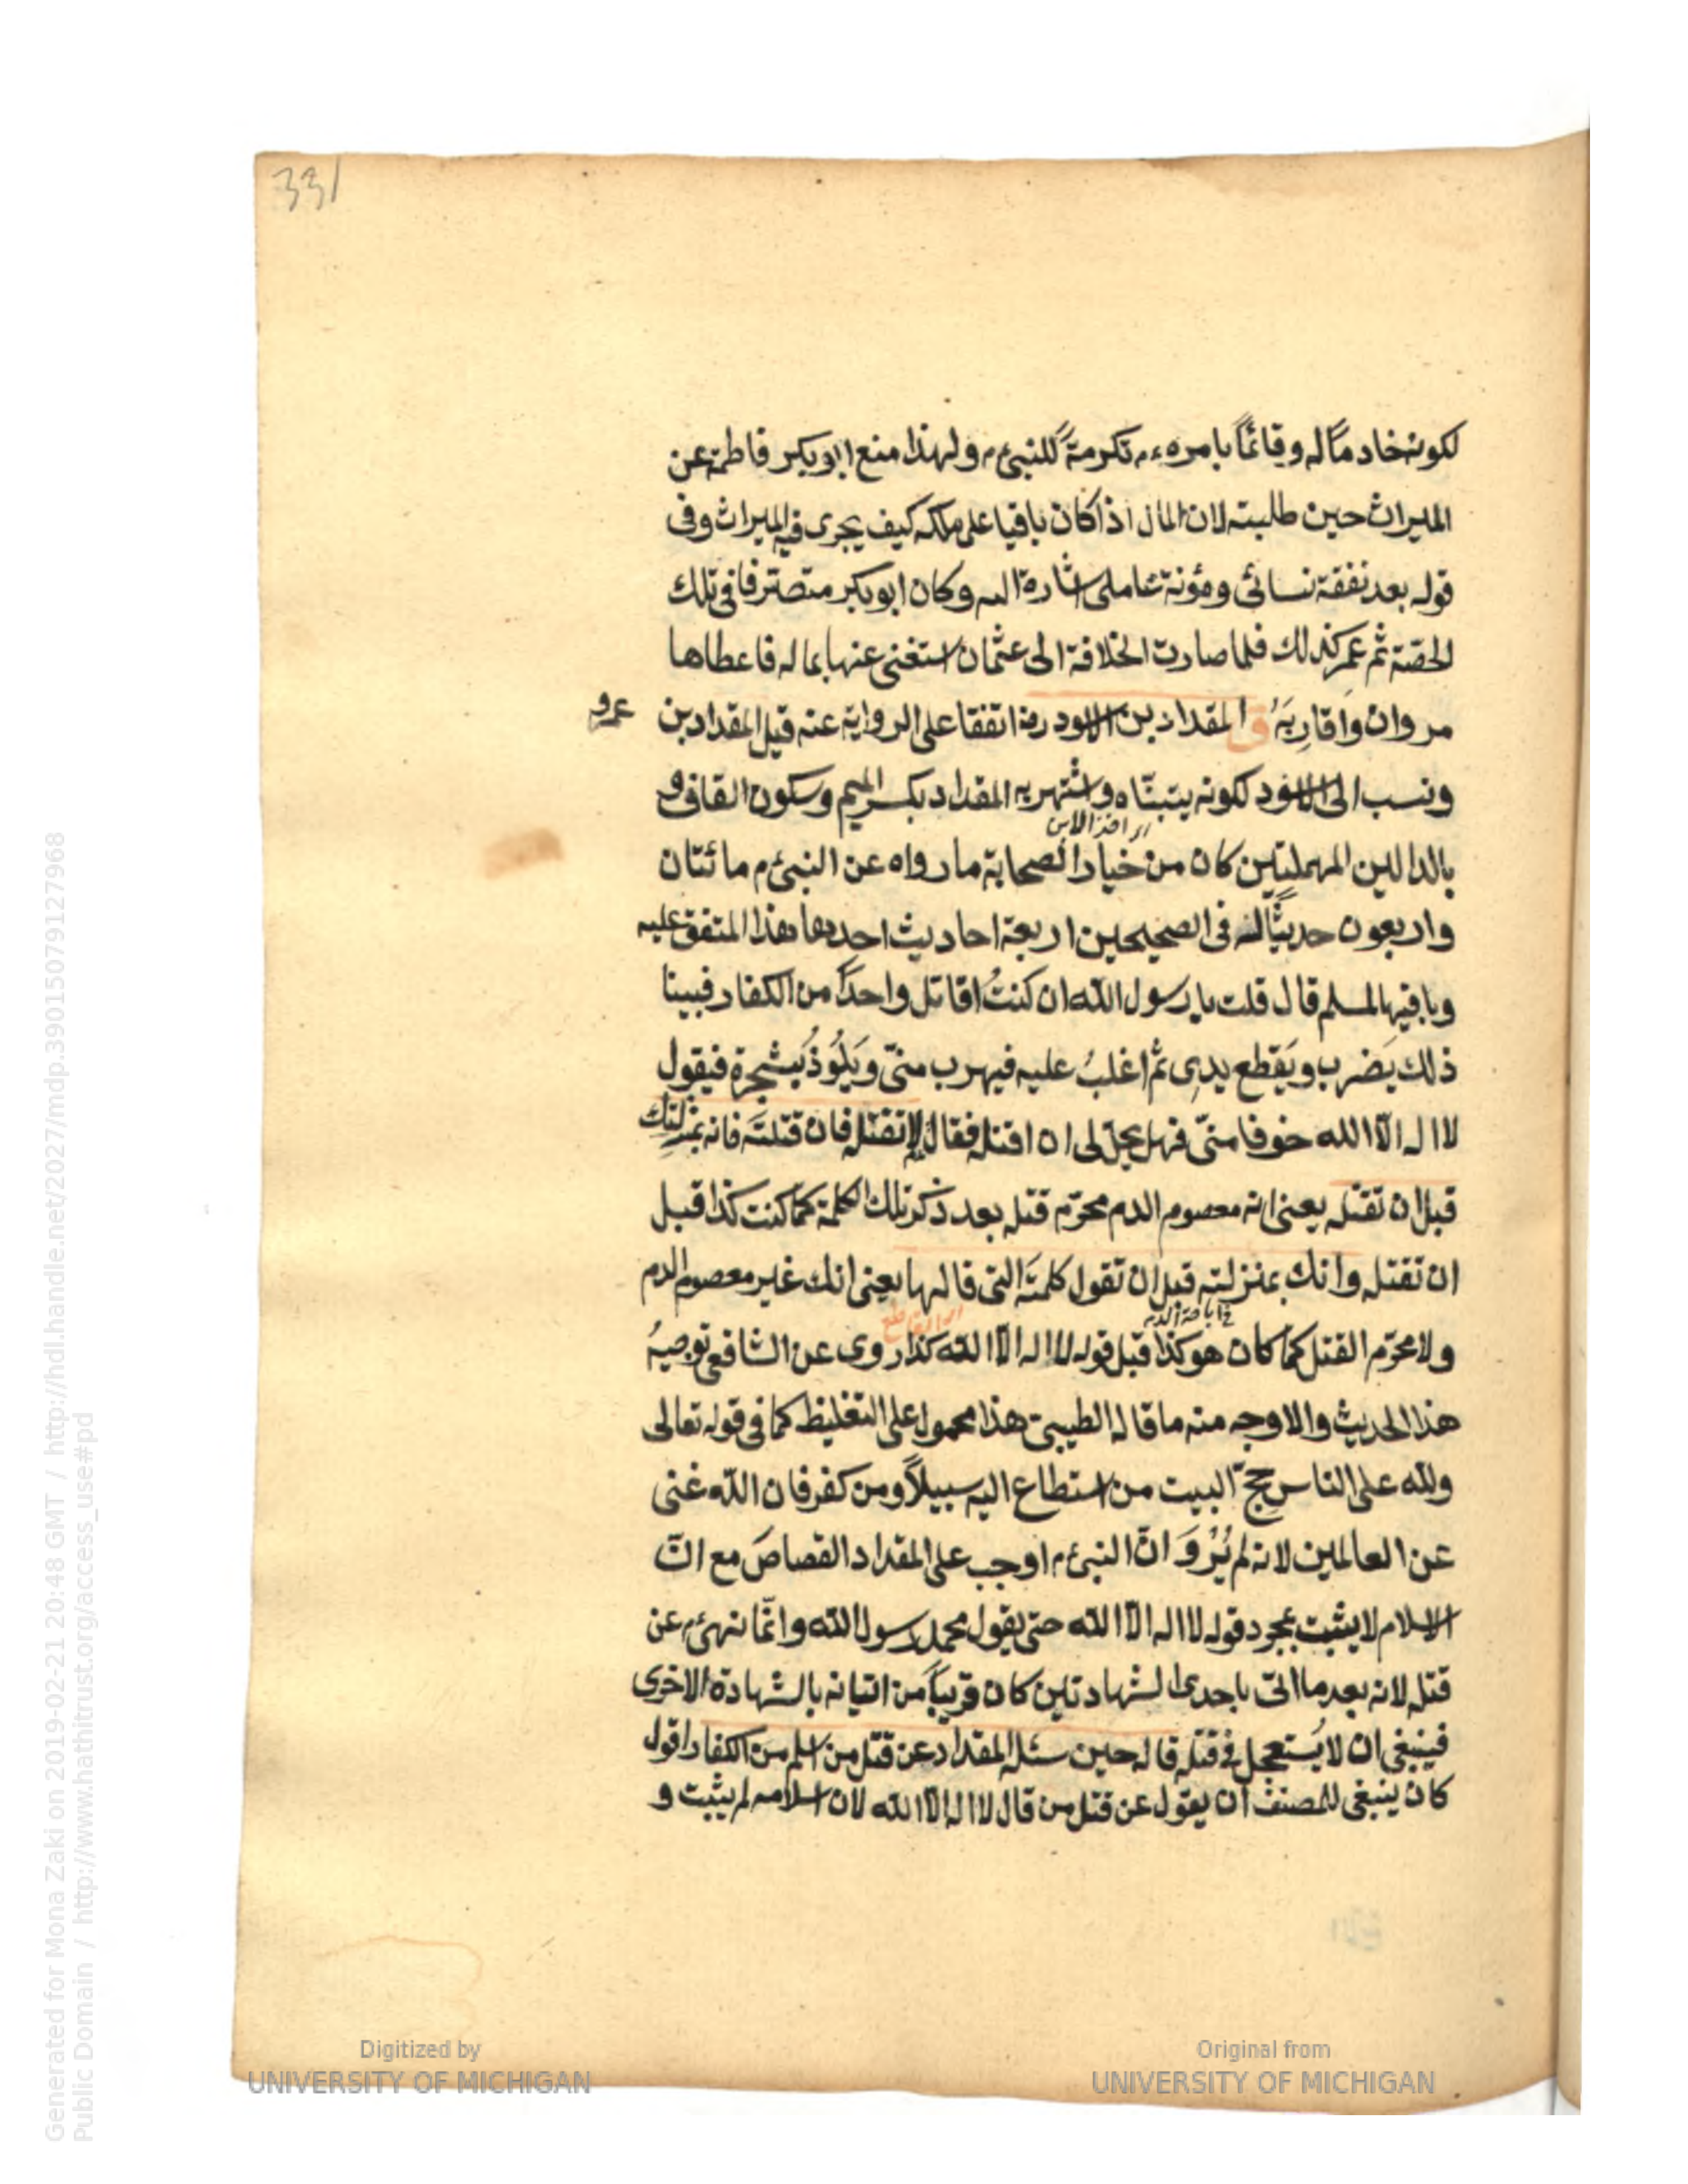 331
لكونه خادمًا له وقائمًا بامره ءم تكرمةً للنبئ م ولهذا منع ابو بكر فاطمة عن
الميراث حين طلبته لان المال اذا كان باقيا على ملكه كيف يجرى فيه الميراث وفى
قوله بعد نفقة نسائى ومؤنة عاملى اشارة اليه وكان ابو بكر متصرفا فى تلك
الحصّة ثم عمر كذلك فلما صارت الخلافة الى عثمان استغنى عنها بماله فاعطاها
مروان واقاربَهُ ق المقداد بن الاسود رضه اتفقا على الرواية عنه قيل المقداد بن
عمرو
ونسب الى الاسود لكونه يتبنّاه واشتهر به المقداد بكسر الميم وسكون القاف و
اى اخذ الابن
بالدالين المهملتين كان من خيار الصحابة ما رواه عن النبئ م مائتان
واربعون حديثًا له فى الصحيحين اربعة احاديث احدها هذا المتفق عليه
وباقيها لمسلم قال قلت يا رسول الله ان كنتُ اقاتل واحدًا من الكفار فبينا
ذلك يَضرب ويَقطع يدى ثم اغلبُ عليه فيهرب منّى ويَلُوذُ بشجرة فيقول
لا اله الّا الله خوفا منّى فهل يحلّ لى ان اقتله فقال لا تقتله فان قتلتَه فانه بمنزلتك
قبل ان تقتله يعنى انه معصوم الدم محرّم قتله بعد ذكر تلك الكلمة كما كنت كذا قبل
ان تقتله وانك بمنزلته قبل ان تقول كلمتَه التى قالها يعنى انك غير معصوم الدم
فى اباحة الدم
اى القاطع
ولا محرّم القتل كما كان هو كذا قبل قوله لا اله الّا الله كذا روى عن الشافعى توجيهُ
هذا الحديث والاوجه منه ما قاله الطيبى هذا محمول على التغليظ كما فى قوله تعالى
ولله على الناس حِجّ البيت من استطاع اليه سبيلًا ومن كفر فان الله غنى
عن العالمين لانه لم يُرْوَ انّ النبئ م اوجب على المقداد القصاصَ مع انّ
الاسلام لا يثبت بمجرد قوله لا اله الّا الله حتى يقول محمد رسول الله وانّما نهى ءم عن
قتله لانه بعد ما اتى باحدى الشهادتين كان قريبًا من اتيانه بالشهادة الاخرى
فينبغى ان لا يُستعجل فى قتله قاله حين سئله المقداد عن قتل من اسلم من الكفار اقول
كان ينبغى للمصنف ان يقول عن قتل من قال لا اله الّا الله لان اسلامه لم يثبت و
Digitized by
UNIVERSITY OF MICHIGAN
Original from
UNIVERSITY OF MICHIGAN
Generated for Mona Zaki on 2019-02-21 20:48 GMT / http://hdl.handle.net/2027/mdp.39015079127968
Public Domain / http://www.hathitrust.org/access_use#pd